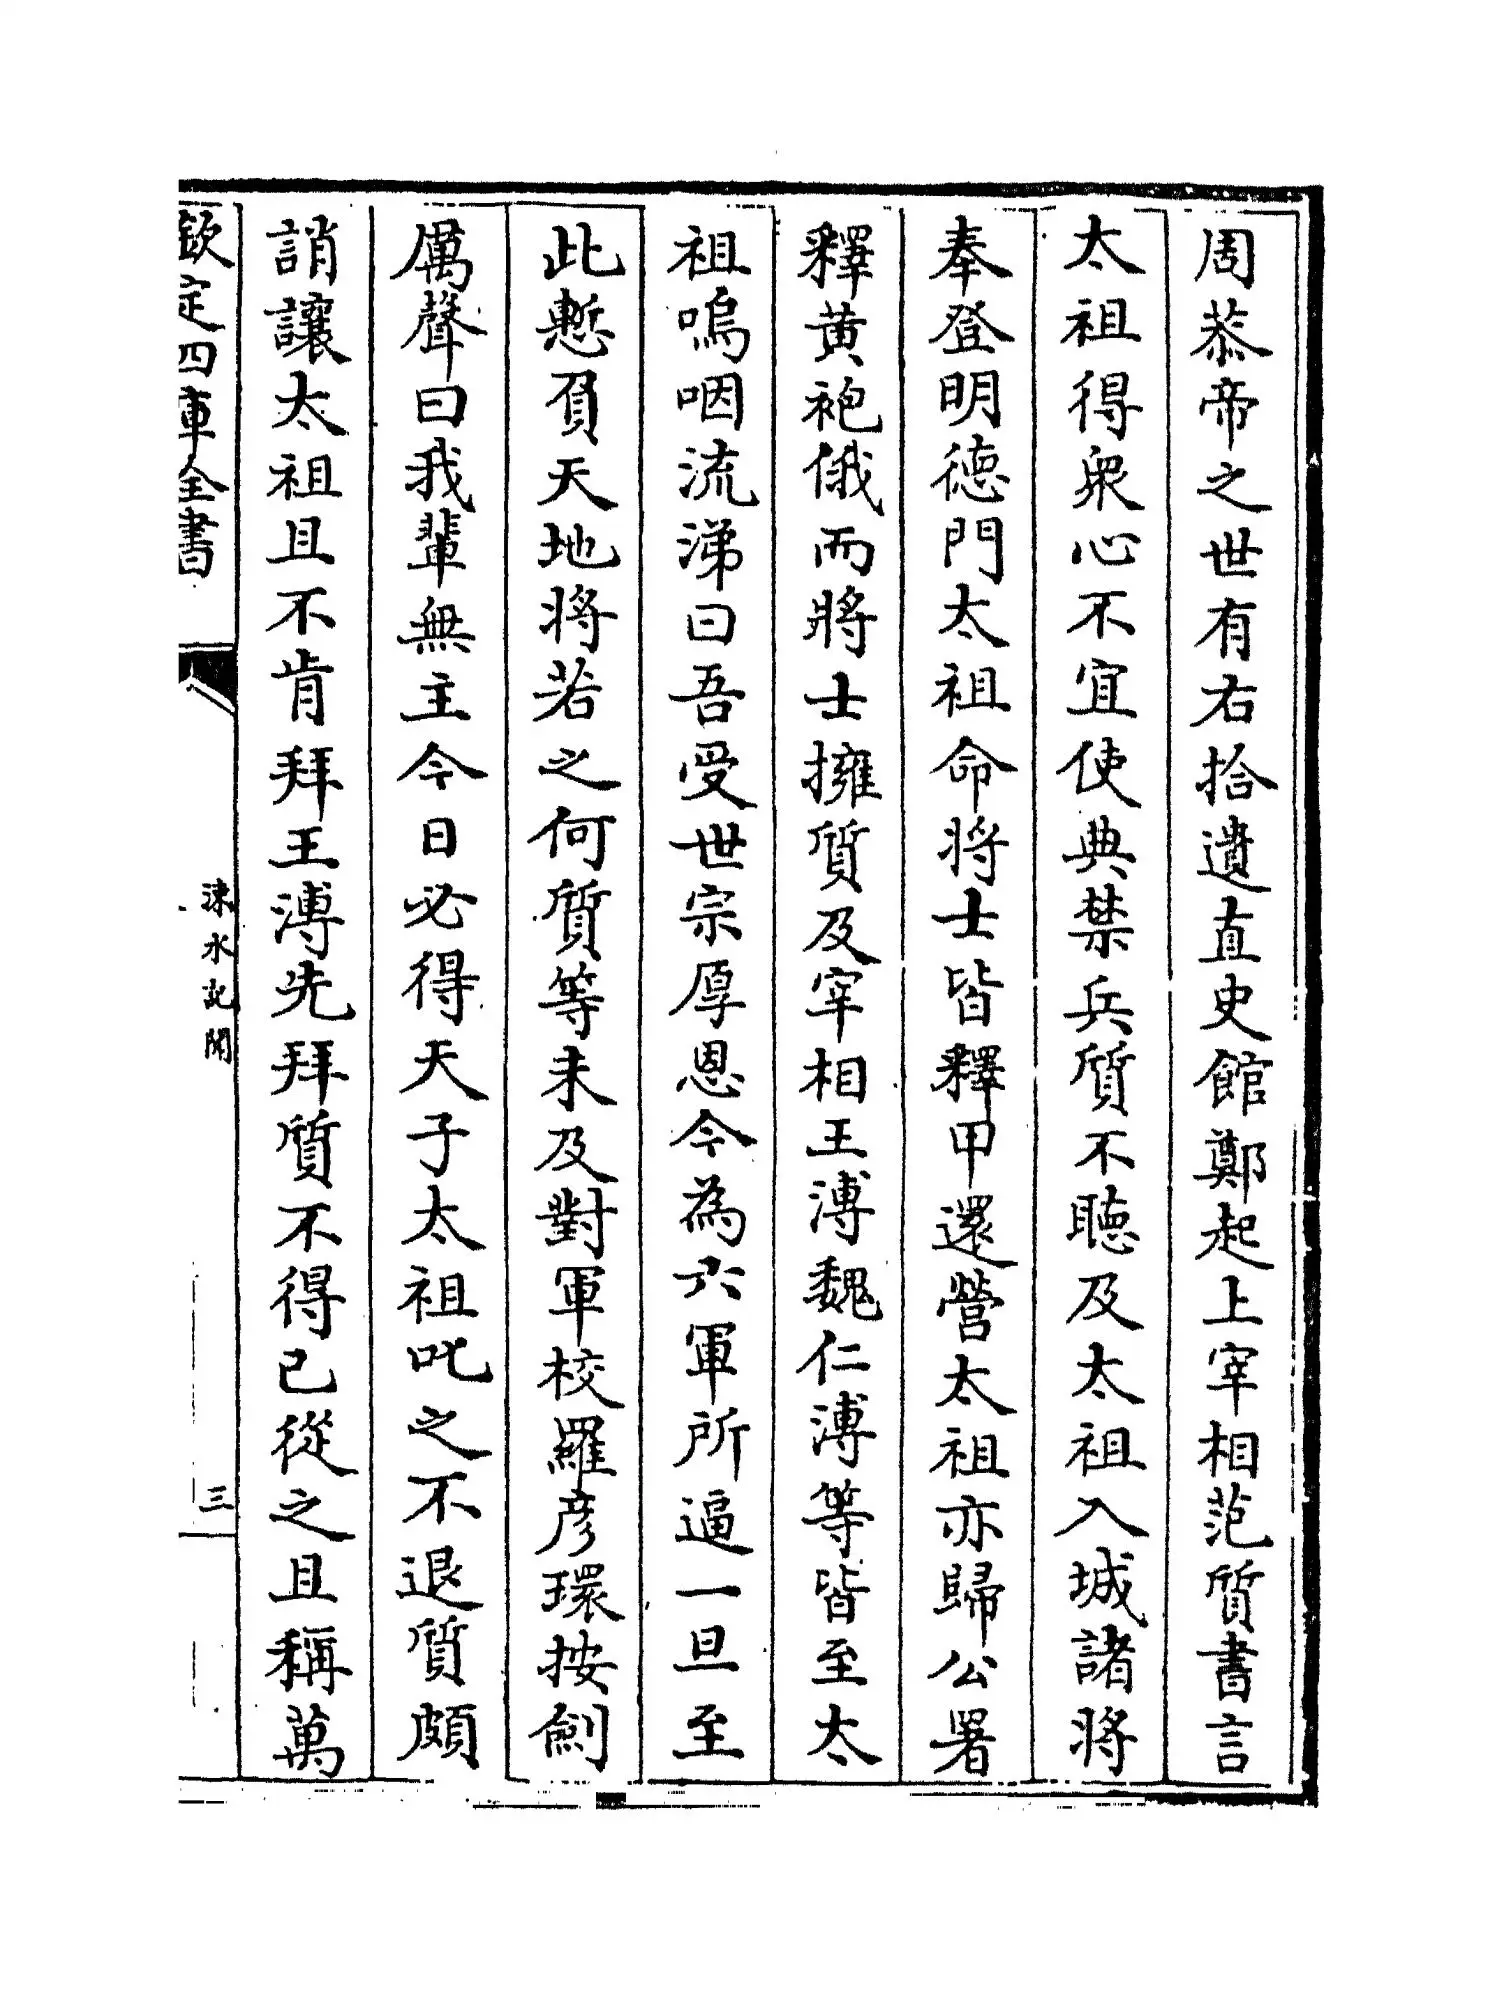 周恭帝之世有右拾遺直史館鄭起上宰相范質書言
太祖得衆心不宜使典禁兵質不聽及太祖入城諸將
奉登明德門太祖命將士皆釋甲還營太祖亦歸公署
釋黄袍俄而將士擁質及宰相王溥魏仁溥等皆至太
祖嗚咽流涕曰吾受世宗厚恩今為六軍所逼一旦至
此慙負天地將若之何質等未及對軍校羅彦環按劍
厲聲曰我輩無主今日必得天子太祖叱之不退質頗
誚讓太祖且不肯拜王溥先拜質不得已從之且稱萬
欽定四庫全書
涑水記聞
三